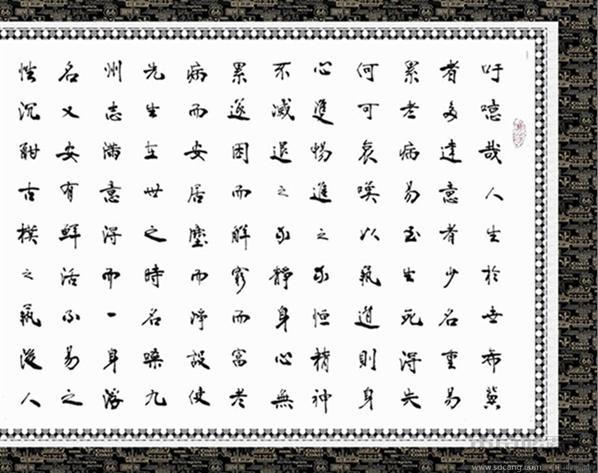 吁噫哉人生於世希冀
者多達意者少名重易
累老病易至生死得失
何可哀嘆以藝道則身
心進暢進之永恒精神
不滅退之永靜身心無
累遂困而解窮而富老
病而安居塵而淨設使
先生在世之時名噪九
州志滿意得而一身浮
名又安有鮮活不易之
性沉酣古樸之藝後人
www.socang.com